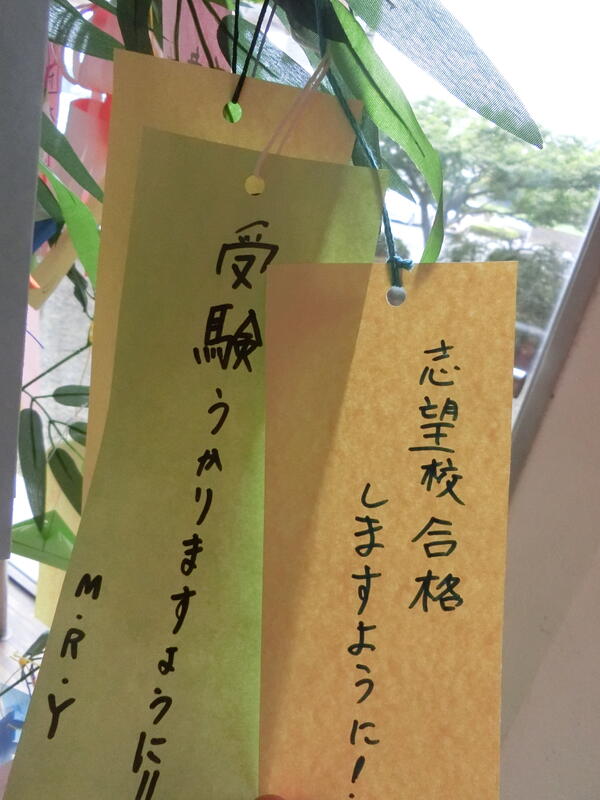 志望校合格
しますように!
受験うかりますように!!
M.R.Y